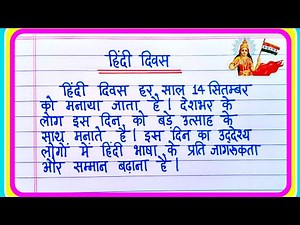 हिंदी दिवस
हिंदी दिवस हर साल 14 सितम्बर
को मनाया जाता है। देशभर के
लोग इस दिन को बड़े उत्साह के
साथ मनाते है। इस दिन का उद्देश्य
लोगों में हिंदी भाषा के प्रति जागरूकता
और सम्मान बढ़ाना है।